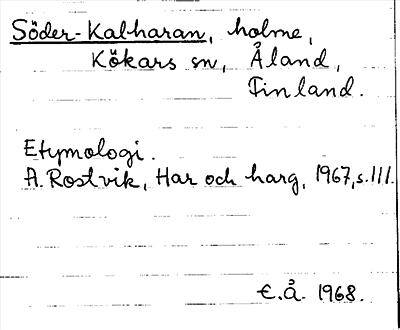 Söder-Kalharan, holme,
Kökars sn, Åland,
Finland.
Etymologi.
A. Rostvik, Har och harg, 1967, s. 111.
E.Å. 1968.